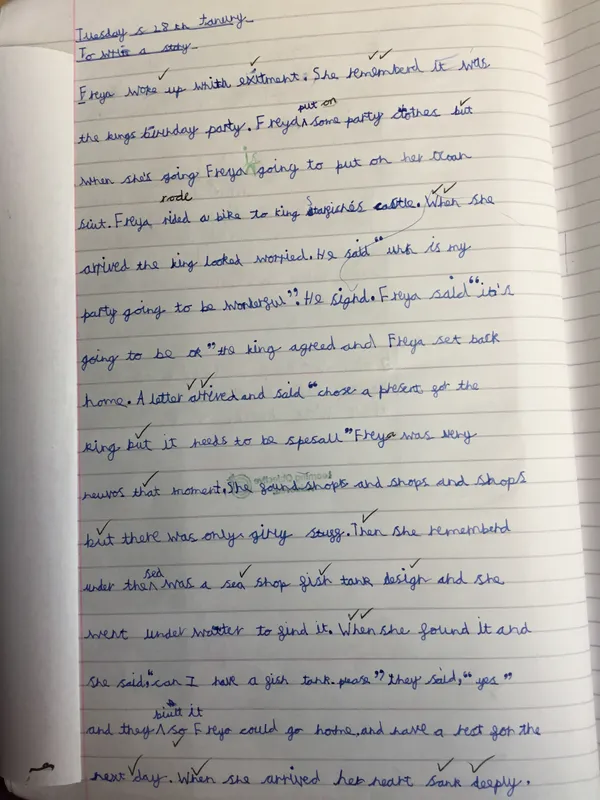 Tuesday 28th Janury
To write a story
Freya woke up whith exitment. She rememberd it was
put on
the kings birthday party. Freya ^ some party clothes but
is
when she's going Freya going to put on her
rode
Freya rided a bike to king castle. When she
arrived the king looked worried. He said " is my
party going to be wonderful". He sighd. Freya said "it's
going to be ok" the king agreed and Freya set back
home. A letter arrived and said "chose a present for the
king but it needs to be spesall" Freya was very
neuvos that moment. She found shops and shops and shops
but there was only girly stuff. Then she rememberd
sea
under the ^ was a sea shop fish tank desigh and she
went under watter to find it. When she found it and
she said, "can I have a fish tank please" they said, "yes"
biult it
and they ^ so Freya could go home, and have a rest for the
next day. When she arrived her heart sank deeply.